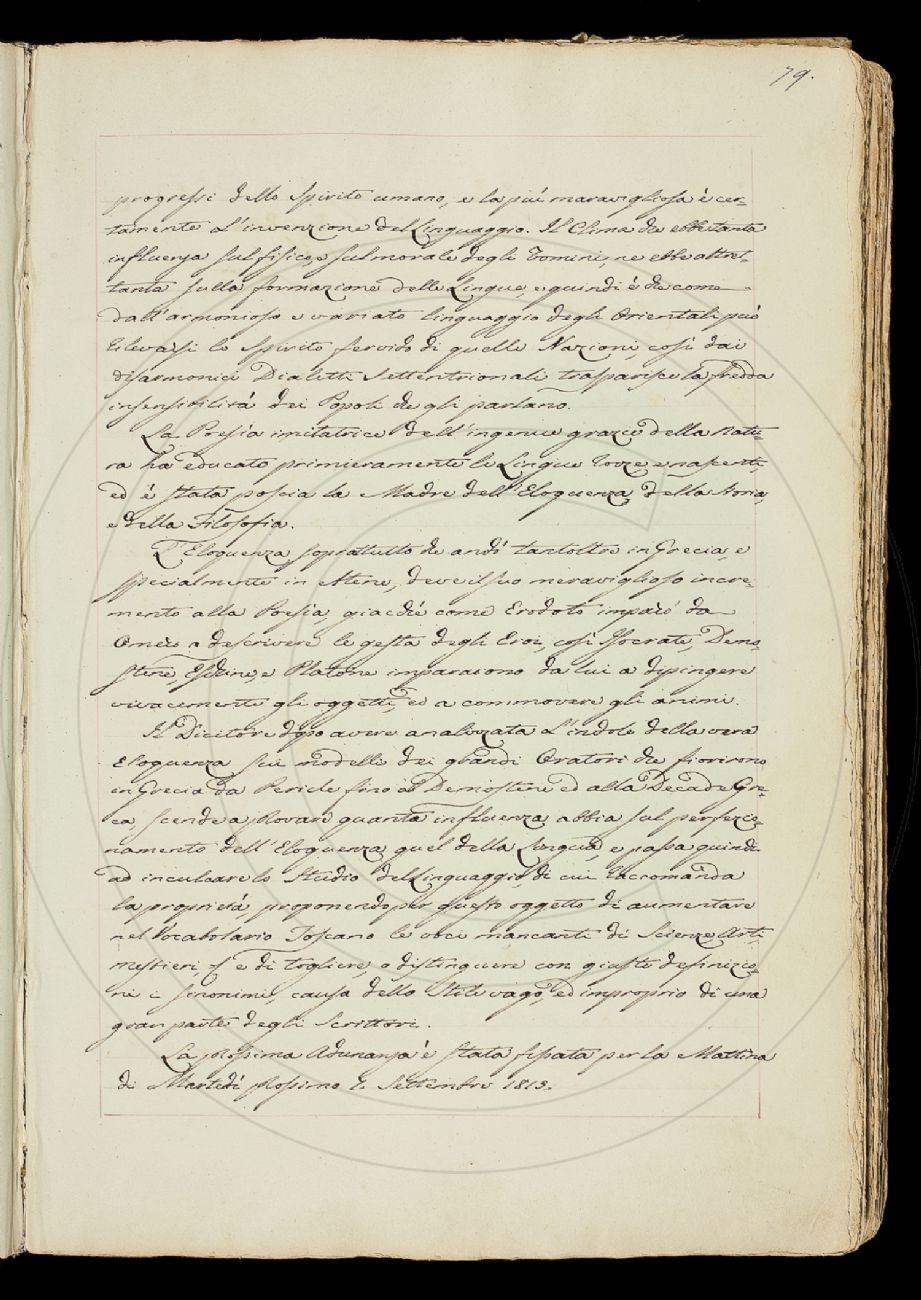 79.
progressi dello Spirito umano, e la più maravigliosa è cer-
tamente l'invenzione del Linguaggio. Il Clima che ebbe tanta
influenza sul fisico, e sul morale degli Uomini, ne ebbe altret-
tanta sulla formazione delle Lingue, e quindi è che come
dall'armonioso e variato linguaggio degli Orientali può
rilevarsi lo Spirito fervido di quelle Nazioni, così dai
disarmonici Dialetti Settentrionali trasparisce la fredda
insensibilità dei Popoli che gli parlano.
La Poesia imitatrice dell'ingenue grazie della Natu-
ra ha educato primieramente le Lingue rozze e nascenti,
ed è stata poscia la Madre dell'Eloquenza della Storia,
e della Filosofia.
L'Eloquenza soprattutto che andò tant'oltre in Grecia, e
specialmente in Atene, deve il suo meraviglioso incre-
mento alla Poesia, giacchè come Erodoto imparò da
Omero a descrivere le gesta degli Eroi, così Isocrate, Demo-
stene, Eschine, e Platone impararono da lui a dipingere
vivacemente gli oggetti, ed a commovere gli animi.
Il Dicitore dopo avere analizzata l'indole della vera
Eloquenza sui modelli dei grandi Oratori che fiorirono
in Grecia da Pericle fino a Demostene ed alla Decade Gre-
ca, scende a provare quanta influenza abbia sul perfezio-
namento dell'Eloquenza quel della Lingua, e passa quindi
ad inculcare lo Studio del Linguaggio, di cui raccomanda
la proprietà, proponendo per questo oggetto di aumentare
nel Vocabolario Toscano le voci mancanti di Scienze Arti,
mestieri, e di togliere, o distinguere con giuste definizio-
ni i sinonimi, causa dello Stile vago, ed improprio di una
gran parte degli Scrittori.
La prossima Adunanza è stata fissata per la Mattina
di Martedì prossimo Settembre 1813.